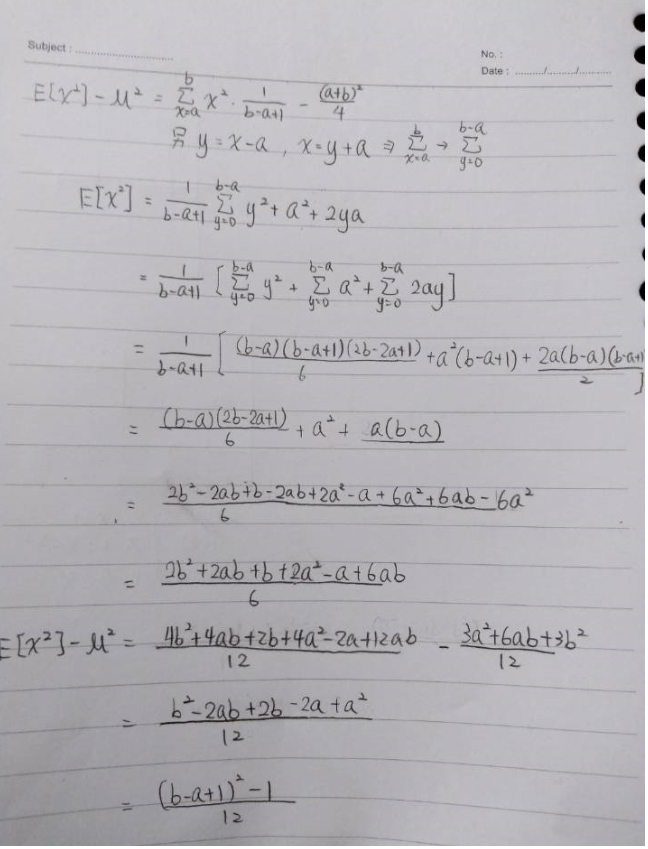 Subject : ..............................
No. :
Date : ........../........../..........
E[x²] - μ² = \sum_{x=a}^{b} x² · \frac{1}{b-a+1} - \frac{(a+b)²}{4}
另 y = x-a , x = y+a ⇒ \sum_{x=a}^{b} → \sum_{y=0}^{b-a}
E[x²] = \frac{1}{b-a+1} \sum_{y=0}^{b-a} y² + a² + 2ya
= \frac{1}{b-a+1} [ \sum_{y=0}^{b-a} y² + \sum_{y=0}^{b-a} a² + \sum_{y=0}^{b-a} 2ay ]
= \frac{1}{b-a+1} [ \frac{(b-a)(b-a+1)(2b-2a+1)}{6} + a²(b-a+1) + \frac{2a(b-a)(b-a+1)}{2} ]
= \frac{(b-a)(2b-2a+1)}{6} + a² + a(b-a)
= \frac{2b²-2ab+b-2ab+2a²-a+6a²+6ab-6a²}{6}
= \frac{2b²+2ab+b+2a²-a+6ab}{6}
E[x²] - μ² = \frac{4b²+4ab+2b+4a²-2a+12ab}{12} - \frac{3a²+6ab+3b²}{12}
= \frac{b²-2ab+2b-2a+a²}{12}
= \frac{(b-a+1)²-1}{12}